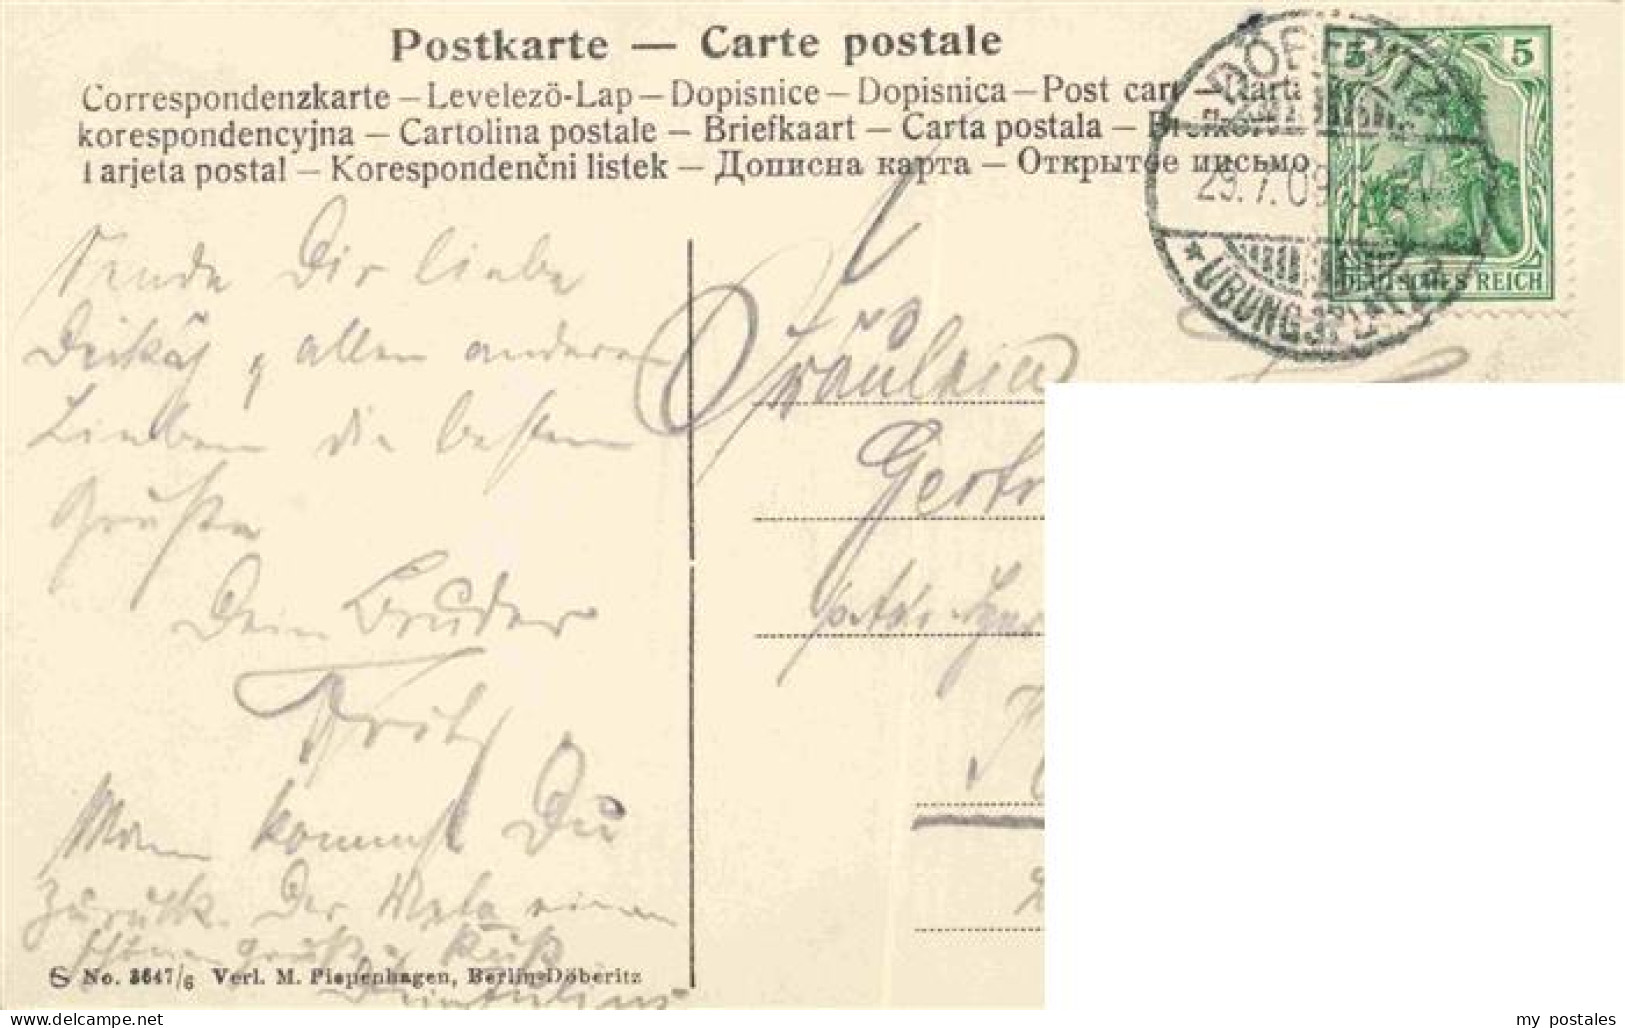 Postkarte — Carte postale
Correspondenzkarte – Levelezö-Lap – Dopisnice – Dopisnica – Post cart – Karta
korespondencyjna – Cartolina postale – Briefkaart – Carta postala – Brefkort
Tarjeta postal – Korespondenčni listek – Дописна карта – Открытое письмо
DÖBERITZ
29.7.09
* ÜBUNGSPLATZ
5 5
DEUTSCHES REICH
Sende Dir liebe
allen anderen
Lieben die besten
Grüße
Dein Bruder
Fritz
Wann kommst Du
zurück. Der einen
schönen Gruß Kuß
Fräulein
Gertr
No. 3647/6 Verl. M. Piepenhagen, Berlin-Döberitz
my postales